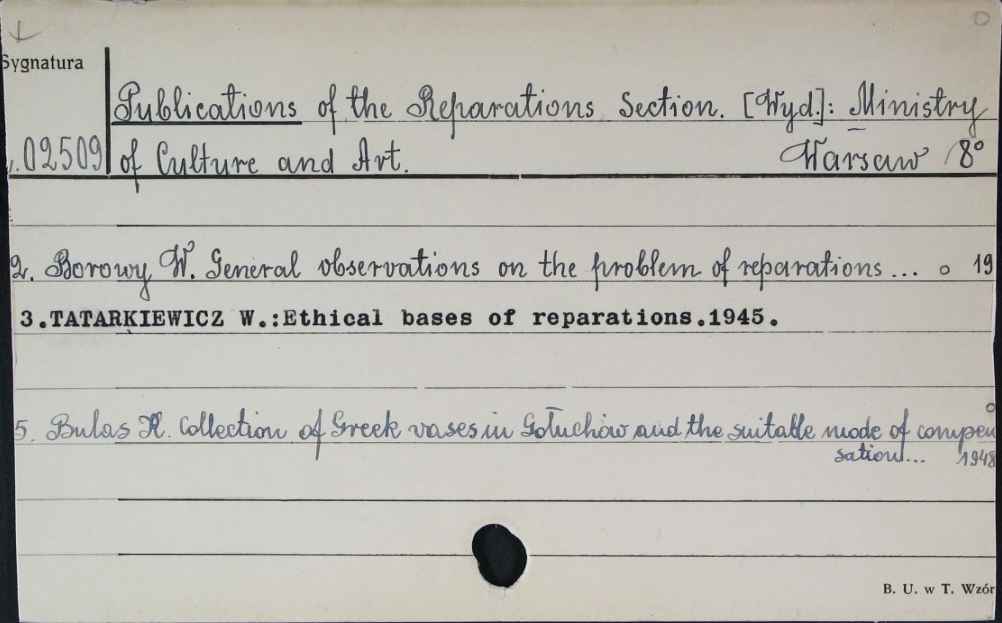 Sygnatura
Publications of the Reparations Section. [Wyd.]: Ministry
02509 of Culture and Art. Warsaw 8°
2. Borowy W. General observations on the problem of reparations... o 19
3.TATARKIEWICZ W.:Ethical bases of reparations.1945.
5. Bulas K. Collection of Greek vases in Gołuchów and the suitable mode of compen
sation... 1948
B. U. w T. Wzór